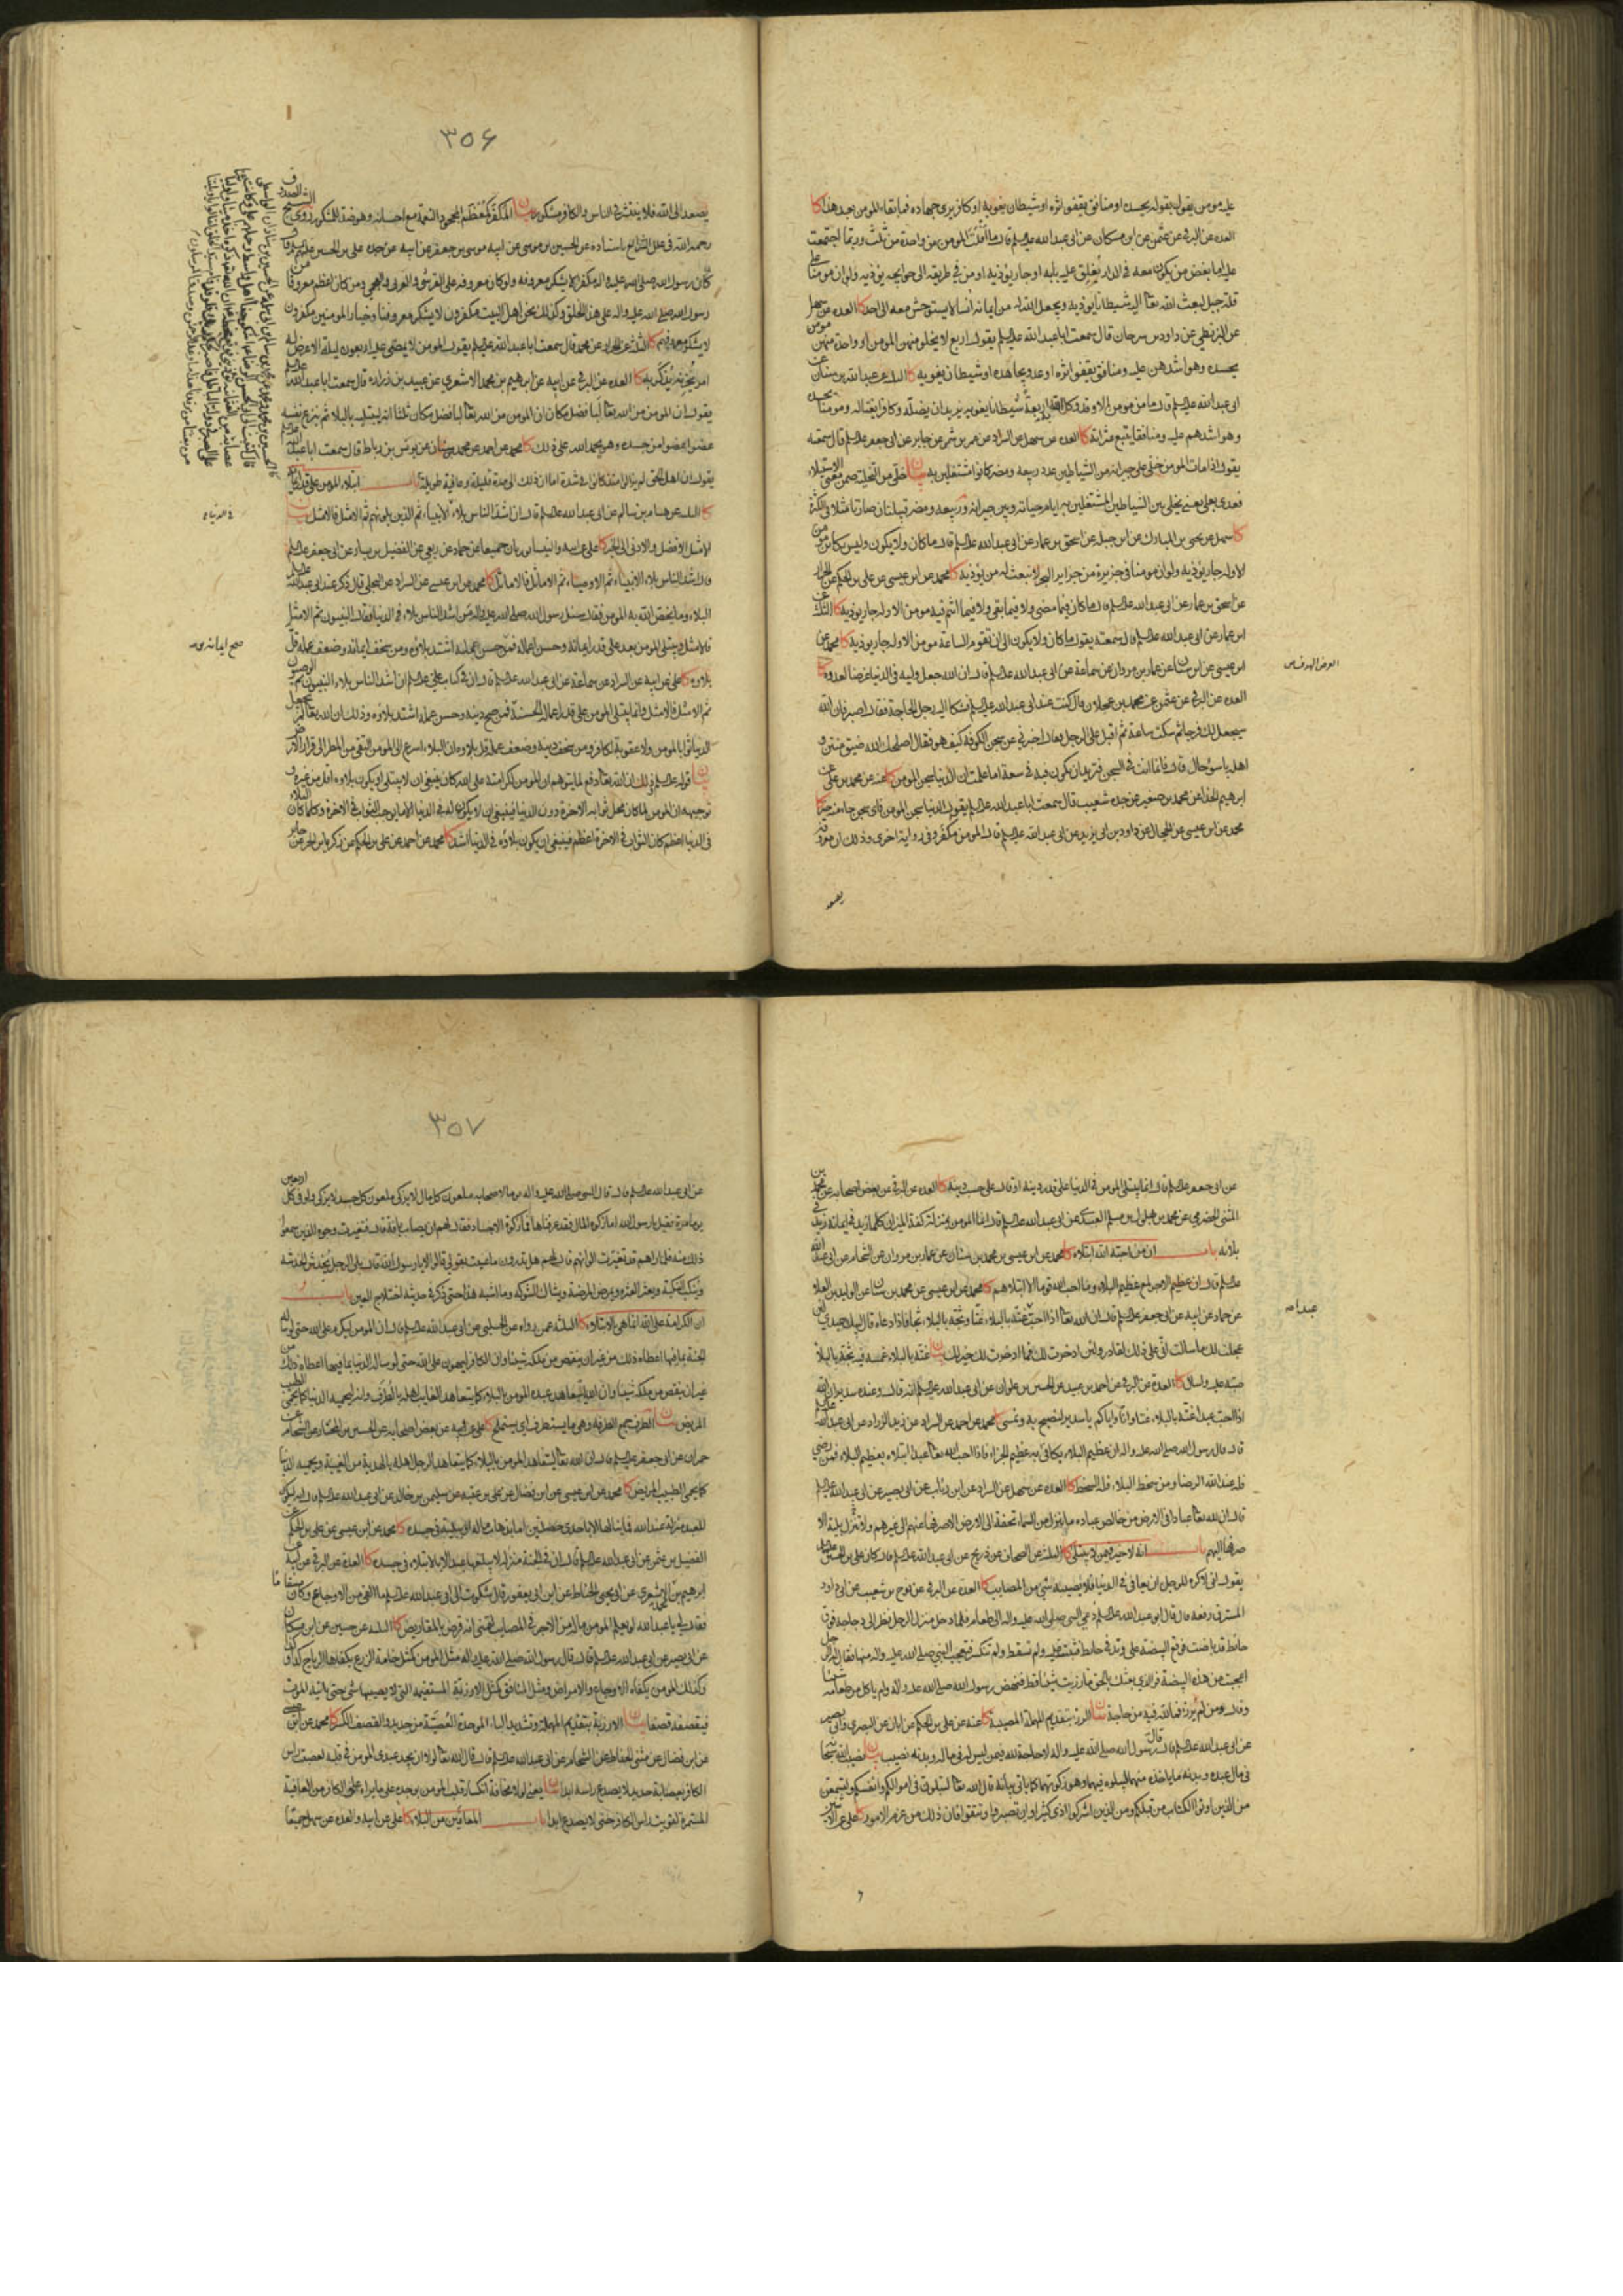 عليه مومن يقول بقوله يحسده او منافق يقفو اثره او شيطان يغويه او كافر يرى جهاده فما بقاء المومن بعد هذا كا
العدة عن البرقي عن عثمن عن ابن مسكان عن ابى عبد الله عليه السلم قال ما افلت المومن من واحدة من ثلث وربما اجتمعت
عليه اما بغض من يكون معه في الدار يغلق عليه بابه او جار يؤذيه او من في طريقه الى حوايجه يؤذيه ولو ان مومنا على
قلة جبل لبعث الله تعالى اليه شيطانا يؤذيه ويجعل الله له من ايمانه انسا لا يستوحش معه الى احد كا العدة عن سهل
عن البزنطي عن داود بن سرحان قال سمعت ابا عبد الله عليه السلم يقول اربع لا يخلو منهن المومن او واحدة منهن مومن
يحسده وهو اشدهن عليه ومنافق يقفو اثره او عدو يجاهده او شيطان يغويه كا
ابى عبد الله عليه السلم قال ما من مومن الا وقد وكل الله به اربعة شيطانا يغويه يريد ان يضله وكافر يقتاله ومومنا يحسده
وهو اشدهم عليه ومنافقا يتبع عثراته كا العدة عن سهل عن السراد عن عمرو بن شمر عن جابر عن ابى جعفر عليه السلم قال سمعته
يقول اذا مات المومن خلى على جيرانه من الشياطين عدد ربيعة ومضر كانوا مشتغلين به بيان خلى من التخلية ضمن معنى الاستيلاء
فعدى بعلى يعنى يخلى بين الشياطين المشتغلين به ايام حياته وبين جيرانه وربيعة ومضر قبيلتان صارتا مثلا في الكثرة
كا سهل عن يحيى بن المبارك عن ابن جبلة عن اسحق بن عمار عن ابى عبد الله عليه السلم قال ما كان ولا يكون وليس بكائن مومن
الا وله جار يؤذيه ولو ان مومنا في جزيرة من جزاير البحر لا نبعث له من يؤذيه كا محمد عن ابن عيسى عن على بن الحكم عن الخراز
عن اسحق بن عمار عن ابى عبد الله عليه السلم قال ما كان فيما مضى ولا فيما بقى ولا فيما انتم فيه مومن الا وله جار يؤذيه كا الثلثة عن
ابن عمار عن ابى عبد الله عليه السلم قال سمعته يقول ما كان ولا يكون الى ان تقوم الساعة مومن الا وله جار يؤذيه كا محمد عن
ابن عيسى عن ابن سنان عن عمار بن مروان عن سماعة عن ابى عبد الله عليه السلم قال ان الله جعل وليه في الدنيا غرضا لعدوه كا
العدة عن البرقي عن عثمن عن محمد بن عجلان قال كنت عند ابى عبد الله عليه السلم فشكا اليه رجل الحاجة فقال اصبر فان الله
سيجعل لك فرجا ثم سكت ساعة ثم اقبل على الرجل فقال اخبرني عن سجن الكوفة كيف هو فقال اصلحك الله ضيق منتن و
اهله باسوء حال قال فانما انت في السجن فتريد ان تكون فيه في سعة اما علمت ان الدنيا سجن المومن كا عنه عن محمد بن على عن
ابرهيم الحذا عن محمد بن صغير عن جده شعيب قال سمعت ابا عبد الله عليه السلم يقول الدنيا سجن المومن فاى سجن جاء منه خير كا
محمد عن ابن عيسى عن الحجال عن داود بن ابى يزيد عن ابى عبد الله عليه السلم قال المومن مكفر وفي رواية اخرى وذلك ان معروفه
يصعد
٣٥۶
يصعد الى الله فلا ينشر في الناس والكافر مشكور بيان المكفر كمعظم المجحود النعمة مع احسانه وهو ضد المشكور روى الشيخ الصدوق
رحمه الله في علل الشرايع باسناده عن الحسين بن موسى عن ابيه موسى بن جعفر عن ابيه عن جده على بن الحسين عليهم السلم قال
كان رسول الله صلى الله عليه واله مكفرا لا يشكر معروفه ولو كان معروفه على القرشى والعربى والعجمى ومن كان اعظم معروفا من
رسول الله صلى الله عليه واله على هذا الخلق وكذلك نحن اهل البيت مكفرون لا يشكر معروفنا وخيار المومنين مكفرون
لا يشكر معروفهم كا الثلثة عن الخراز عن محمد قال سمعت ابا عبد الله عليه السلم يقول المومن لا يمضى عليه اربعون ليلة الا عرض له
امر يحزنه يذكر به كا العدة عن البرقي عن ابيه عن ابرهيم بن محمد الاشعري عن عبيد بن زرارة قال سمعت ابا عبد الله عليه السلم
يقول ان المومن من الله تعالى لبافضل مكان ان المومن من الله تعالى لبافضل مكان ثلثا انه ليبتليه بالبلاء ثم ينزع نفسه
عضوا عضوا من جسده وهو يحمد الله على ذلك كا محمد عن احمد عن محمد بن سنان عن يونس بن رباط قال سمعت ابا عبد الله
يقول ان اهل الحق لم يزالوا منذ كانوا في شدة اما ان ذلك الى مدة قليلة وعافية طويلة باب ابتلاء المومن على قدر ايمانه
كا الثلثة عن هشام بن سالم عن ابى عبد الله عليه السلم قال ان اشد الناس بلاء الانبياء ثم الذين يلونهم ثم الامثل فالامثل بيان
الامثل الافضل والادنى الى الخير كا على عن ابيه والنيسابوريان جميعا عن حماد عن ربعي عن الفضيل بن يسار عن ابى جعفر عليه السلم
قال اشد الناس بلاء الانبياء ثم الاوصياء ثم الاماثل فالاماثل كا محمد عن ابن عيسى عن السراد عن البجلي قال ذكر عند ابى عبد الله عليه السلم
البلاء وما يخص الله به المومن فقال سئل رسول الله صلى الله عليه واله من اشد الناس بلاء في الدنيا فقال النبيون ثم الامثل
فالامثل ويبتلى المومن بعد على قدر ايمانه وحسن اعماله فمن حسن عمله اشتد بلاؤه ومن سخف ايمانه وضعف عمله قل
بلاؤه كا على عن ابيه عن السراد عن سماعة عن ابى عبد الله عليه السلم قال ان في كتاب على عليه السلم ان اشد الناس بلاء النبيون ثم الوصيون
ثم الامثل فالامثل وانما يبتلى المومن على قدر اعماله الحسنة فمن صح دينه وحسن عمله اشتد بلاؤه وذلك ان الله تعالى لم يجعل
الدنيا ثوابا لمومن ولا عقوبة لكافر ومن سخف دينه وضعف عمله قل بلاؤه ان البلاء اسرع الى المومن التقى من المطر الى قرار الارض
بيان قوله عليه السلم وذلك ان الله تعالى دفع لما يتوهم ان المومن لكرامته على الله كان ينبغي ان لا يبتلى او يكون بلاؤه اقل من غيره و
توجيهه ان المومن لما كان محل ثوابه الاخرة دون الدنيا فينبغي ان لا يكون له في الدنيا الا ما يوجب الثواب في الاخرة وكلما كان البلاء
في الدنيا اعظم كان الثواب في الاخرة اعظم فينبغي ان يكون بلاؤه في الدنيا اشد كا محمد عن احمد عن على بن الحكم عن زكريا بن الحر عن جابر
عن ابى جعفر عليه السلم قال انما يبتلى المومن في الدنيا على قدر دينه او قال على حسب دينه كا العدة عن البرقي عن بعض اصحابه عن محمد بن
المثنى الحضرمي عن محمد بن بهلول بن مسلم العبدي عن ابى عبد الله عليه السلم قال انما المومن بمنزلة كفة الميزان كلما زيد في ايمانه زيد في
بلائه باب ان من احبه الله ابتلاه كا محمد عن ابن عيسى عن محمد بن سنان عن عمار بن مروان عن الشحام عن ابى عبد الله
عليه السلم قال ان عظيم الاجر لمع عظيم البلاء وما احب الله قوما الا ابتلاهم كا محمد عن ابن عيسى عن محمد بن سنان عن الوليد بن العلا
عن حماد عن ابيه عن ابى جعفر عليه السلم قال ان الله تعالى اذا احب عبدا غته بالبلاء غتا وثجه بالبلاء ثجا فاذا دعاه قال لبيك عبدي لئن
عجلت لك ما سالت انى على ذلك لقادر ولئن ادخرت لك فما ادخرت لك خير لك بيان غته بالبلاء غمسه فيه ثجه بالبلاء
صبه عليه واسال كا العدة عن البرقي عن احمد بن عبيد عن الحسين بن علوان عن ابى عبد الله عليه السلم انه قال وعنده سدير ان الله
اذا احب عبدا غته بالبلاء غتا وانا واياكم يا سدير لنصبح به ونمسى كا محمد عن احمد عن السراد عن زيد الزراد عن ابى عبد الله عليه السلم
قال قال رسول الله صلى الله عليه واله ان عظيم البلاء يكافى به عظيم الجزاء فاذا احب الله تعالى عبدا ابتلاه بعظيم البلاء فمن رضى
فله عند الله الرضا ومن سخط البلاء فله السخط كا العدة عن سهل عن السراد عن ابن رئاب عن ابى بصير عن ابى عبد الله عليه السلم
قال ان لله تعالى عبادا في الارض من خالص عباده ما ينزل من السماء تحفة الى الارض الا صرفها عنهم الى غيرهم ولا نزل بلية الا
صرفها اليهم باب انه لا خير فيمن لا يبتلى كا الثلثة عن الصحاف عن ذريح عن ابى عبد الله عليه السلم قال كان على بن الحسين عليه السلم
يقول انى لاكره للرجل ان يعافى في الدنيا فلا يصيبه شئ من المصايب كا العدة عن البرقي عن نوح بن شعيب عن ابى داود
المسترق رفعه قال قال ابو عبد الله عليه السلم دعي النبى صلى الله عليه واله الى طعام فلما دخل منزل الرجل نظر الى دجاجة فوق
حائط قد باضت فوقع البيضة على وتد في حائط فثبتت عليه ولم تسقط ولم تنكسر فتعجب النبى صلى الله عليه واله منها فقال له الرجل
اعجبت من هذه البيضة فو الذي بعثك بالحق ما رزيت شيئا قط فنهض رسول الله صلى الله عليه واله ولم ياكل من طعامه شيئا
وقال ومن لم يرزا فما لله فيه من حاجة بيان الرزء بتقديم المهملة المصيبة كا عنه عن على بن الحكم عن ابان عن البصري وابى بصير
عن ابى عبد الله عليه السلم قال قال رسول الله صلى الله عليه واله لا حاجة لله فيمن ليس له في ماله وبدنه نصيب بيان
في مال عبده وبدنه ما ياخذه منهما ليبلوه فيهما وهو زكوتهما كما ياتى بيانه قال الله تعالى لتبلون في اموالكم وانفسكم ولتسمعن
من الذين اوتوا الكتاب من قبلكم ومن الذين اشركوا اذى كثيرا وان تصبروا وتتقوا فان ذلك من عزم الامور كا على عن الاثنين
٣٥٧
عن ابى عبد الله عليه السلم قال قال النبى صلى الله عليه واله يوما لاصحابه ملعون كل مال لا يزكى ملعون كل جسد لا يزكى ولو في كل اربعين
يوما مرة فقيل يا رسول الله اما زكوة المال فقد عرفناها فما زكوة الاجساد فقال لهم ان يصاب بافة قال فتغيرت وجوه الذين سمعوا
ذلك منه فلما راهم قد تغيرت الوانهم قال لهم هل تدرون ما عنيت بقولي قالوا لا يا رسول الله قال بلى الرجل يخدش الخدشة
وينكب النكبة ويعثر العثرة ويمرض المرضة ويشاك الشوكة وما اشبه هذا حتى ذكر في حديثه اختلاج العين باب
ان الكرامة على الله انما هي بالابتلاء كا الثلثة عمن رواه عن الحلبي عن ابى عبد الله عليه السلم قال ان المومن ليكرم على الله حتى لو ساله
الجنة بما فيها اعطاه ذلك من غير ان ينقص من ملكه شيئا وان الكافر ليهون على الله حتى لو ساله الدنيا بما فيها اعطاه ذلك من
غير ان ينقص من ملكه شيئا وان الله ليتعاهد عبده المومن بالبلاء كما يتعاهد الغايب اهله بالطرف وانه ليحميه الدنيا كما يحمى الطبيب
المريض بيان الطرف جمع الطرفة وهي ما يستطرف اى يستملح كا على عن ابيه عن بعض اصحابه عن الحسين بن المختار عن الشحام عن
حمران عن ابى جعفر عليه السلم قال ان الله تعالى ليتعاهد المومن بالبلاء كما يتعاهد الرجل اهله بالهدية من الغيبة ويحميه الدنيا
كما يحمى الطبيب المريض كا محمد عن ابن عيسى عن ابن فضال عن على بن عقبة عن سليمن بن خالد عن ابى عبد الله عليه السلم قال انه ليكون
للعبد منزلة عند الله فما ينالها الا باحدى خصلتين اما بذهاب ماله او ببلية في جسده كا محمد عن ابن عيسى عن على بن الحكم عن
الفضيل بن عثمن عن ابى عبد الله عليه السلم قال ان في الجنة منزلة لا يبلغها عبد الا بالابتلاء في جسده كا العدة عن البرقي عن ابيه عن
ابرهيم بن محمد الاشعري عن ابى يحيى الحناط عن ابن ابى يعفور قال شكوت الى ابى عبد الله عليه السلم ما القى من الاوجاع وكان مسقاما
فقال لي يا عبد الله لو يعلم المومن ما له من الاجر في المصايب لتمنى انه قرض بالمقاريض كا الثلثة عن حسين عن ابن مسكان
عن ابى بصير عن ابى عبد الله عليه السلم قال قال رسول الله صلى الله عليه واله مثل المومن كمثل خامة الزرع يكفاها الرياح كذا وكذا
وكذلك المومن يكفاه الاوجاع والامراض ومثل المنافق كمثل الارزبة المستقيمة التي لا يصيبها شئ حتى ياتيه الموت
فيقصفه قصفا بيان الارزبة بتقديم المهملة وتشديد الباء الموحدة العصية من حديد والقصف الكسر كا محمد عن ابن عيسى
عن ابن فضال عن مثنى الحناط عن الشحام عن ابى عبد الله عليه السلم قال قال الله تعالى لولا ان يجد عبدي المومن في قلبه لعصبت راس
الكافر بعصابة حديد لا يصدع راسه ابدا بيان يعنى لولا مخافة انكسار قلب المومن من وجده على ما يراه على الكافر من العافية
المستمرة لقويت راس الكافر حتى لا يصدع ابدا باب المعافين من البلاء كا على عن ابيه والعدة عن سهل جميعا